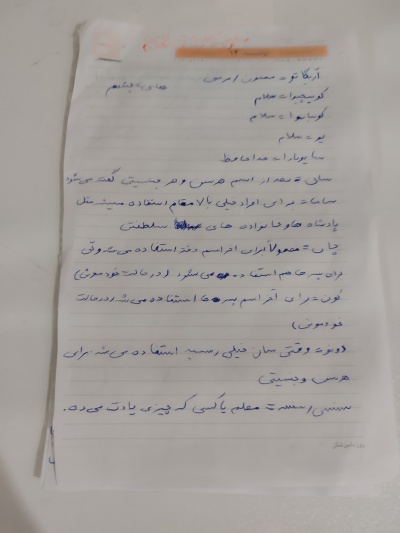 آریگاتو = ممنون / مرسی    هاي = بله / چشم
کونیچیوا = سلام
کونبانوا = سلام
یو = سلام
سایونارا = خداحافظ
سان = بعد از اسم هرسن و هر جنسیتی گفته می شود
ساما = برای افراد خیلی بالا مقام استفاده میشه مثل
پادشاه ها و خانواده های سلطنتی
چان = معمولا برای آخر اسم دختر استفاده می شه ولی
برای پسر هم استفاده می شود (در حالت خودمونی)
کون = برای آخر اسم پسر ها استفاده می شه (در حالت
خودمونی)
دونو = وقتی سان خیلی رسمیه استفاده می شه برای
هرسن و جنسیتی
سنسی = معلم یا کسی که چیزی یادت می ده.